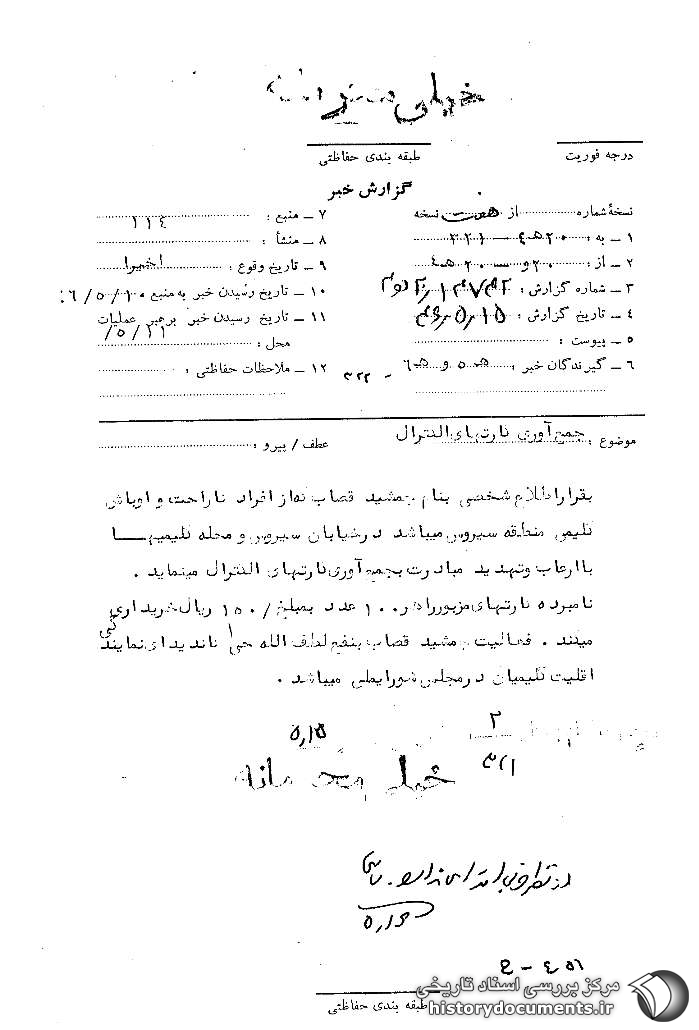 خیلی محرمانه
درجه فوریت
طبقه بندی حفاظتی
گزارش خبر
نسخهٔ شماره از هفت نسخه
۱ ــ به : ۳۲۱
۲ ــ از : ۲۰ و ۲۰ ه‍ ۴
۳ ــ شماره گزارش :
۴ ــ تاریخ گزارش :
۵ ــ پیوست :
۶ ــ گیرندگان خبر : ه‍ ۵ و ه‍ ۶ - ۳۲۲
۷ ــ منبع : ۱۱۴
۸ ــ منشأ :
۹ ــ تاریخ وقوع : اخیرا
۱۰ ــ تاریخ رسیدن خبر به منبع
۱۱ ــ تاریخ رسیدن خبر برهبر عملیات
محل : ۵/۱۱/
۱۲ ــ ملاحظات حفاظتی :
موضوع : جمع آوری کارتهای الکترال
عطف / پیرو :
بقرار اطلاع شخصی بنام جمشید قصاب که از افراد ناراحت و اوباش
کلیمی منطقه سیروس میباشد درخیابان سیروس و محله کلیمیها
با ارعاب و تهدید مبادرت بجمع آوری کارتهای الکترال مینماید .
نامبرده کارتهای مزبور را هر ۱۰۰ عدد بمبلغ /۱۵۰ ریال خریداری
میکند . فعالیت جمشید قصاب بنفع لطف الله حی کاندیدای نمایندگی
اقلیت کلیمیان درمجلس شورایملی میباشد .
۲
۳۲۱
۵٫۱۵
خیلی محرمانه
۵۱ ۴ - ح
طبقه بندی حفاظتی
مرکز بررسی اسناد تاریخی
historydocuments.ir